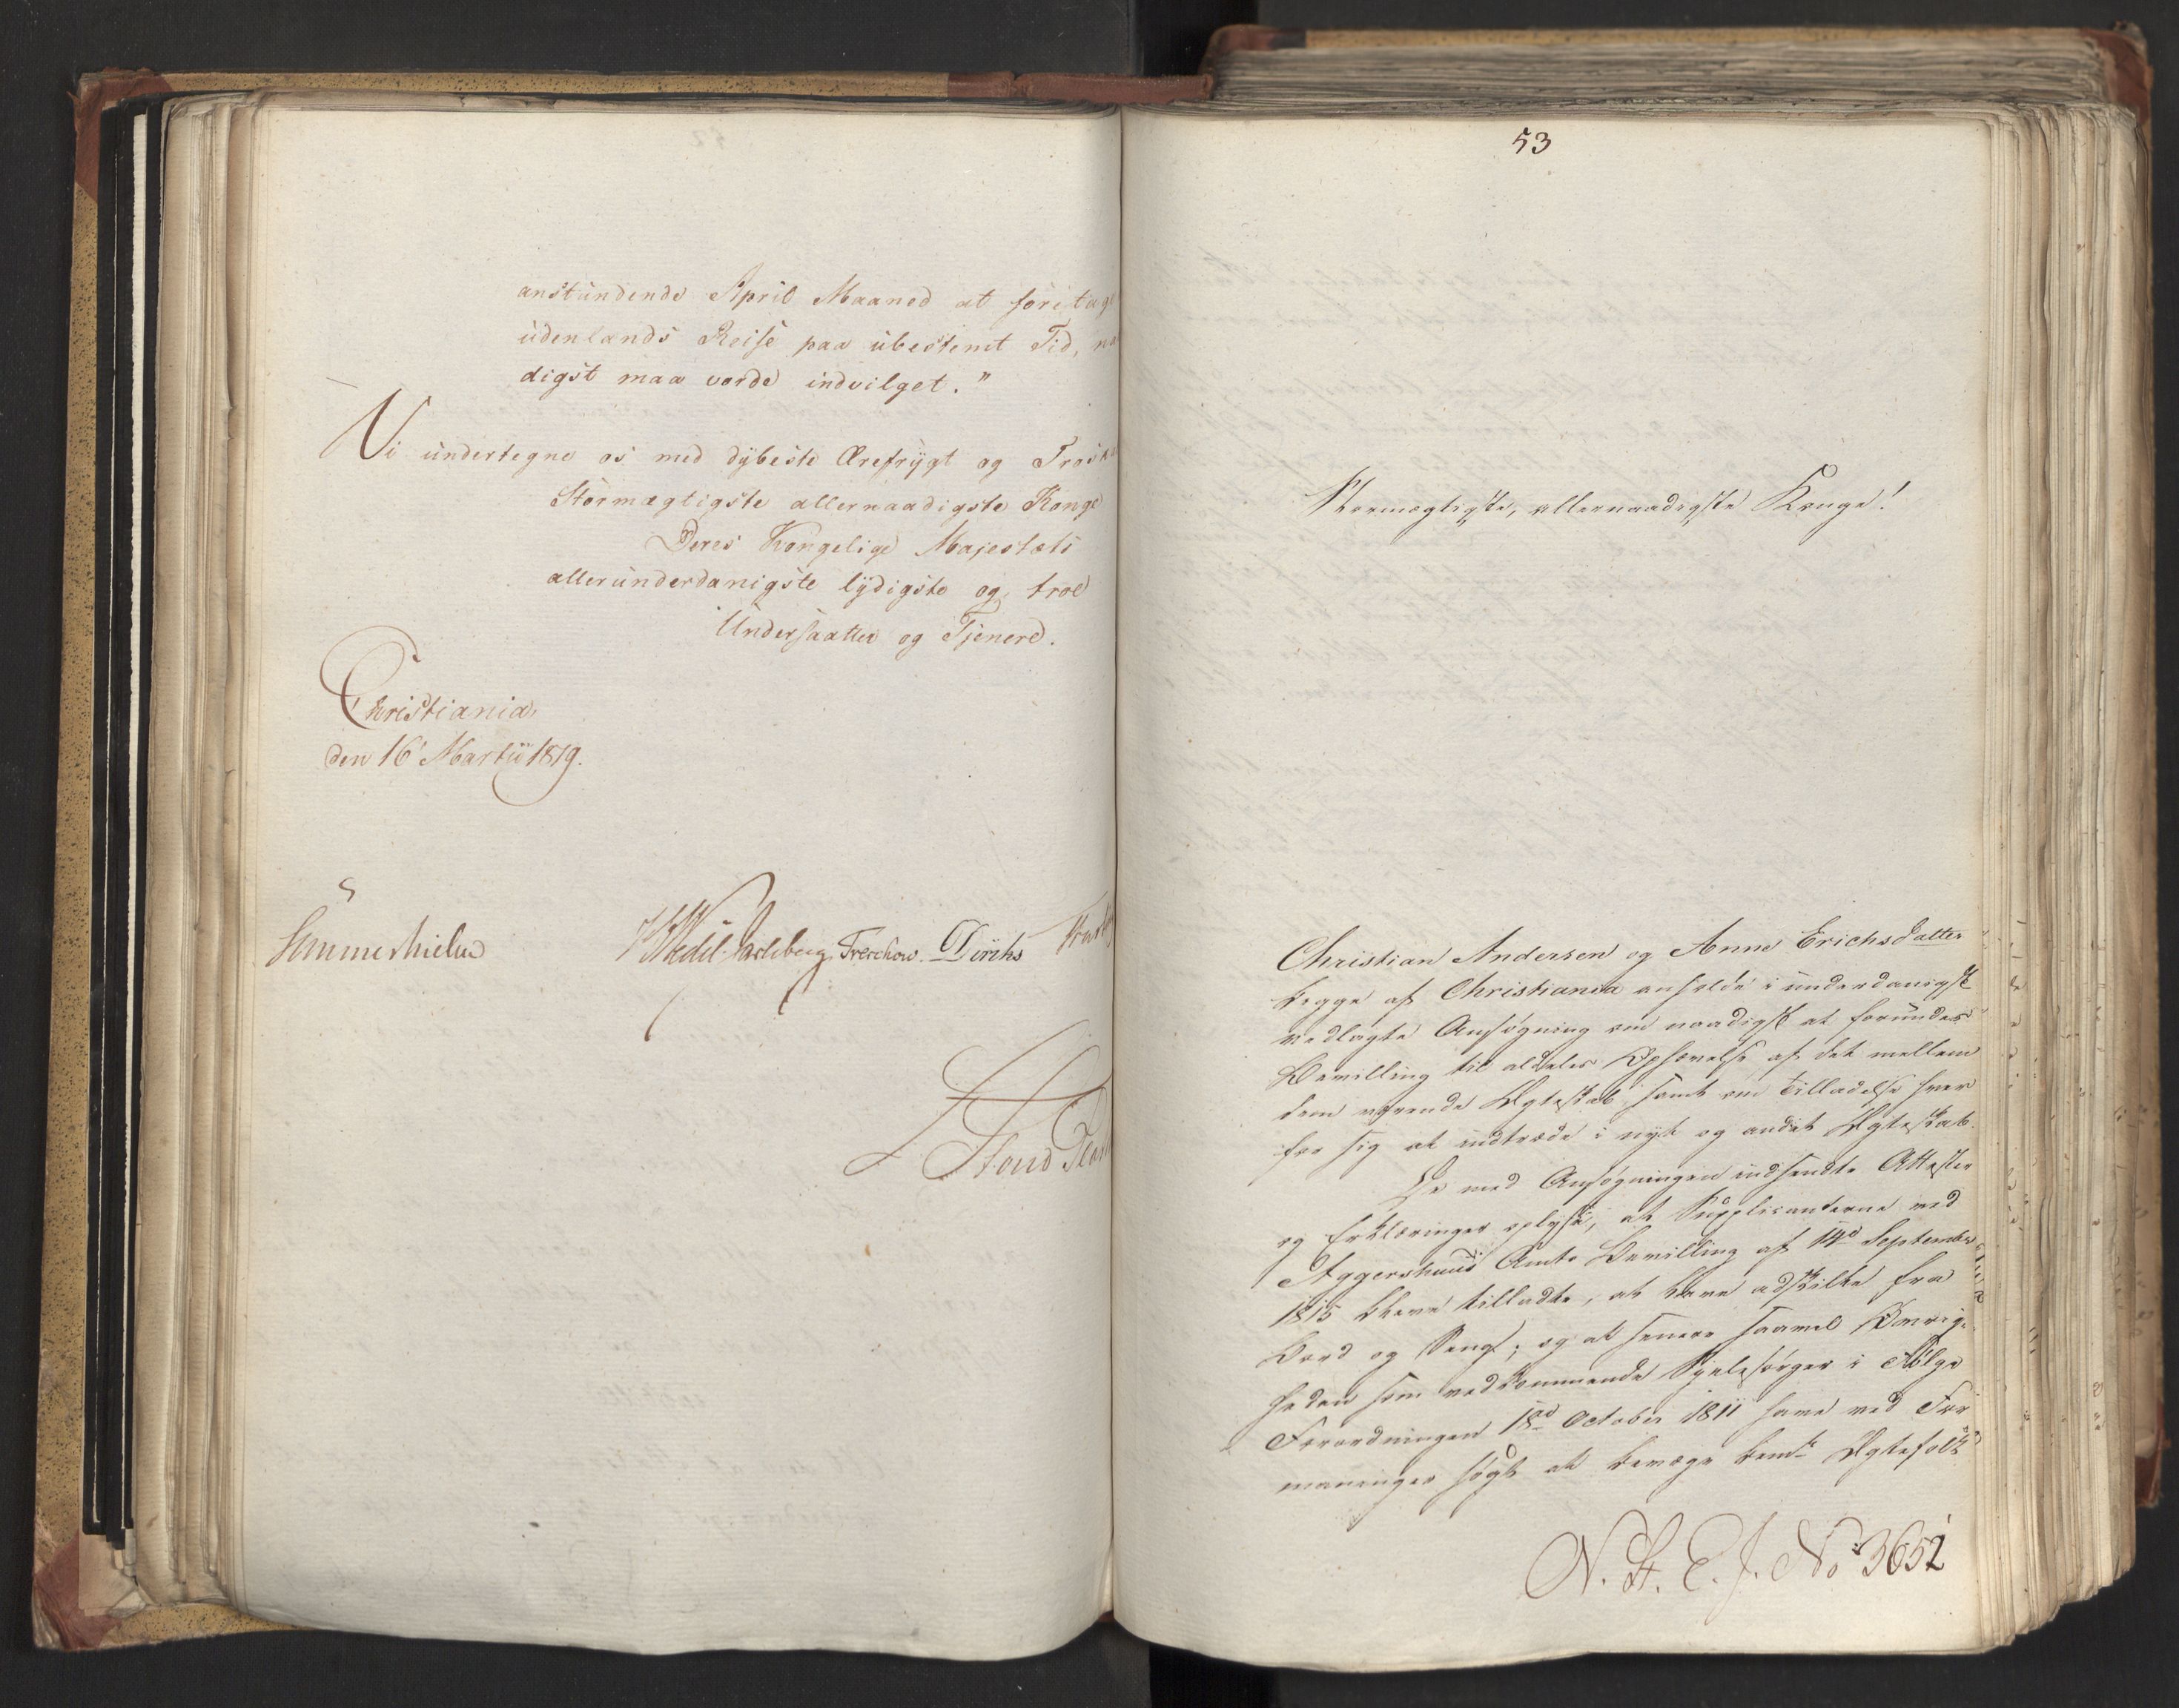 anstundende April Maaned at foretage
udenlands Reise paa ubestemt Tid, naa
digst maa vorde indvilget."
Vi undertegne os med dybeste Ærefrygt og Troskab
Stormægtigste allernaadigste Konge
Deres Kongelige Majestæts
allerunderdanigste lydigste og troe
Undersaatter og Tjenere.
Christiania
den 16' Martii 1819.
Sommerhielm HWedel-Jarlsberg Treschow Diriks
53
Stormægtigste, allernaadigste Konge!
Christian Andersen og Anne Erichsdatter
begge af Christiania anholde i underdanigst
vedlagte Ansøgning om naadigst at forundes
Bevilling til aldeles Ophævelse af det mellem
dem værende Ægteskab samt om Tilladelse hver
for sig at indtræde i nyt og andet Ægteskab.
De med Ansøgningen indsendte Attester
og Erklæringer oplyse, at Supplicanterne ved
Aggershuus Amts Bevilling af 14d September
1815 bleve tilladte, at være adskilte fra
Bord og Seng; og at senere saavel Øvrig-
heden som vedkommende Sjælesørger i Følge
Forordningen 18d October 1811 have ved For
maninger søgt at bevæge bemte Ægtefolk
N. St. E. J. No 3652